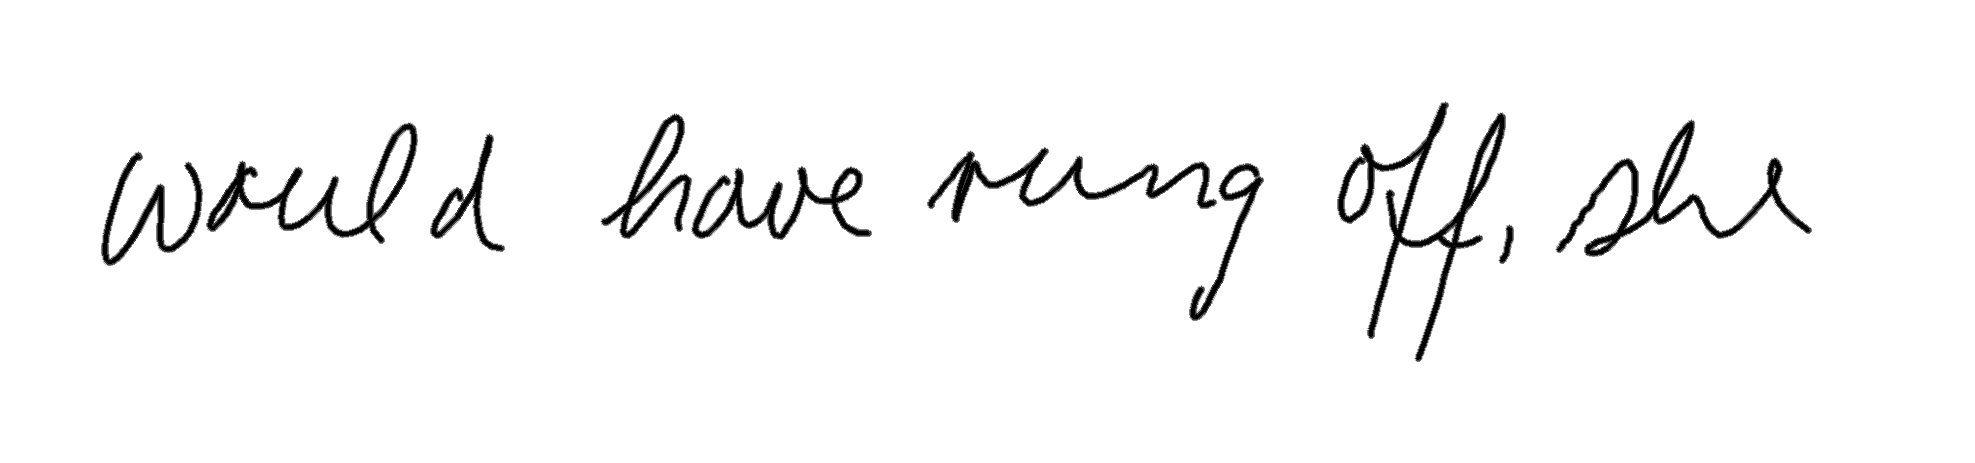 would have rung off, she